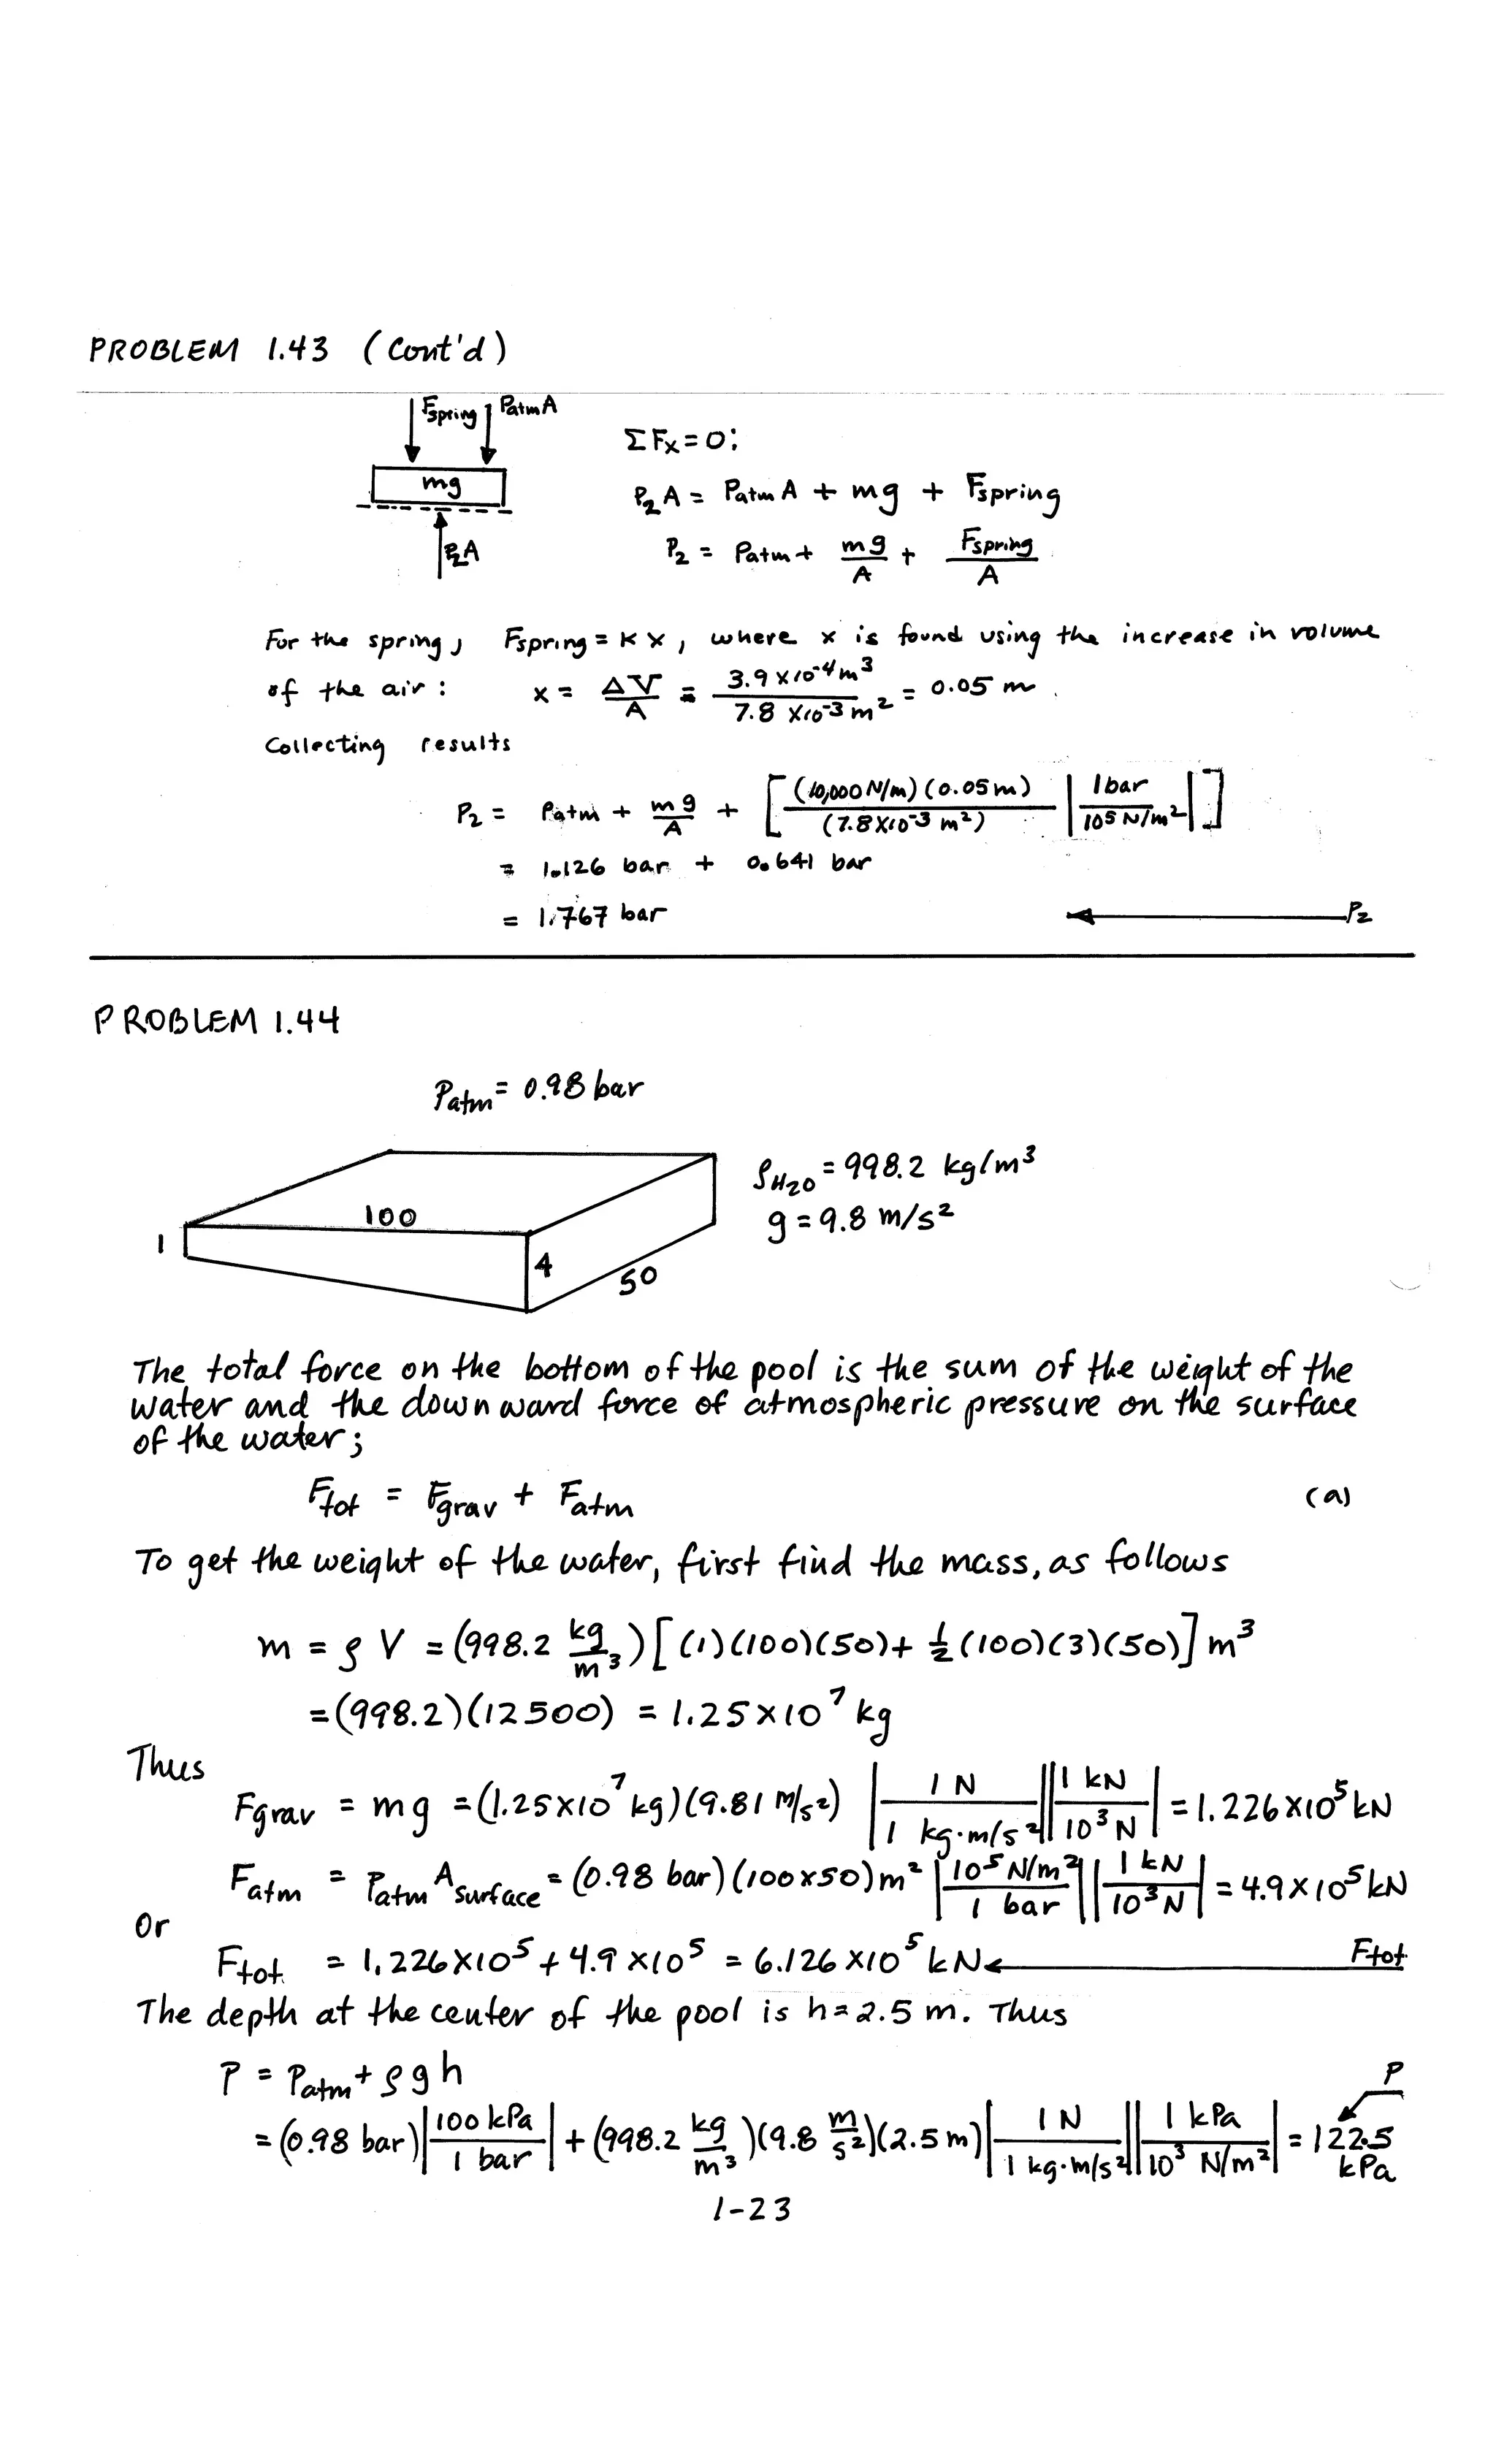 PROBLEM 1.43 (Cont'd)
Fspring PatmA
mg
P2A
ΣFx = 0:
P2 A = Patm A + mg + Fspring
P2 = Patm + mg/A + Fspring/A
For the spring, Fspring = K x, where x is found using the increase in volume
of the air: x = ΔV/A = 3.9 x 10^-4 m^3 / 7.8 x 10^-3 m^2 = 0.05 m.
Collecting results
P2 = Patm + mg/A + [ (10,000 N/m)(0.05 m) / (7.8 x 10^-3 m^2) | 1 bar / 10^5 N/m^2 | ]
= 1.126 bar + 0.641 bar
= 1.767 bar ← P2
PROBLEM 1.44
Patm = 0.98 bar
ρH2O = 998.2 kg/m^3
g = 9.8 m/s^2
100
1
4
50
The total force on the bottom of the pool is the sum of the weight of the
water and the downward force of atmospheric pressure on the surface
of the water;
Ftot = Fgrav + Fatm (a)
To get the weight of the water, first find the mass, as follows
m = ρ V = (998.2 kg/m^3)[(1)(100)(50) + 1/2 (100)(3)(50)] m^3
= (998.2)(12500) = 1.25 x 10^7 kg
Thus
Fgrav = mg = (1.25 x 10^7 kg)(9.81 m/s^2) | 1 N / 1 kg·m/s^2 | | 1 kN / 10^3 N | = 1.226 x 10^5 kN
Fatm = Patm Asurface = (0.98 bar)(100 x 50) m^2 | 10^5 N/m^2 / 1 bar | | 1 kN / 10^3 N | = 4.9 x 10^5 kN
Or
Ftot = 1.226 x 10^5 + 4.9 x 10^5 = 6.126 x 10^5 kN ← Ftot
The depth at the center of the pool is h = 2.5 m. Thus
P = Patm + ρ g h
P
= (0.98 bar) | 100 kPa / 1 bar | + (998.2 kg/m^3)(9.8 m/s^2)(2.5 m) | 1 N / 1 kg·m/s^2 | | 1 kPa / 10^3 N/m^2 | = 122.5 kPa
1-23